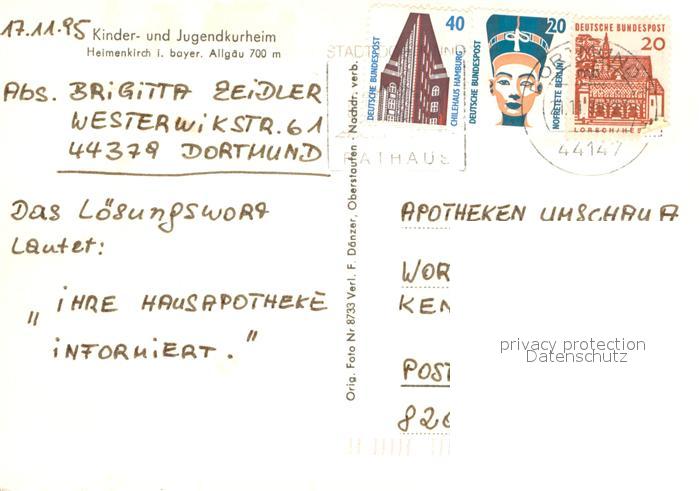 17.11.95
Kinder- und Jugendkurheim
Heimenkirch i. bayer. Allgäu 700 m
Abs. BRIGITTA ZEIDLER
WESTERWIKSTR. 61
44379 DORTMUND
Das Lösungswort
Lautet:
„ IHRE HAUSAPOTHEKE
INFORMIERT. "
Orig. Foto Nr 8733 Verl. F. Dänzer, Oberstaufen · Nachdr. verb.
RATHAUS
40
DEUTSCHE BUNDESPOST
CHILEHAUS HAMBURG
20
DEUTSCHE BUNDESPOST
NOFRETETE BERLIN
DEUTSCHE BUNDESPOST
20
LORSCH/HES
44147
APOTHEKEN UMSCHAU A
WOR
KEN
POST
826
privacy protection
Datenschutz